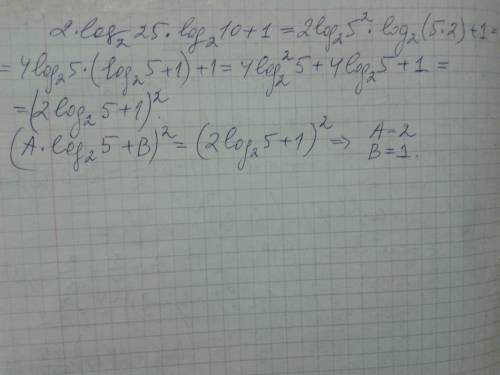 2·log₂25·log₂10+1=2log₂5²·log₂(5·2)+1=
=4log₂5·(log₂5+1)+1=4log₂²5+4log₂5+1=
=(2log₂5+1)².
(A·log₂5+B)²=(2log₂5+1)²⇒ A=2
B=1.